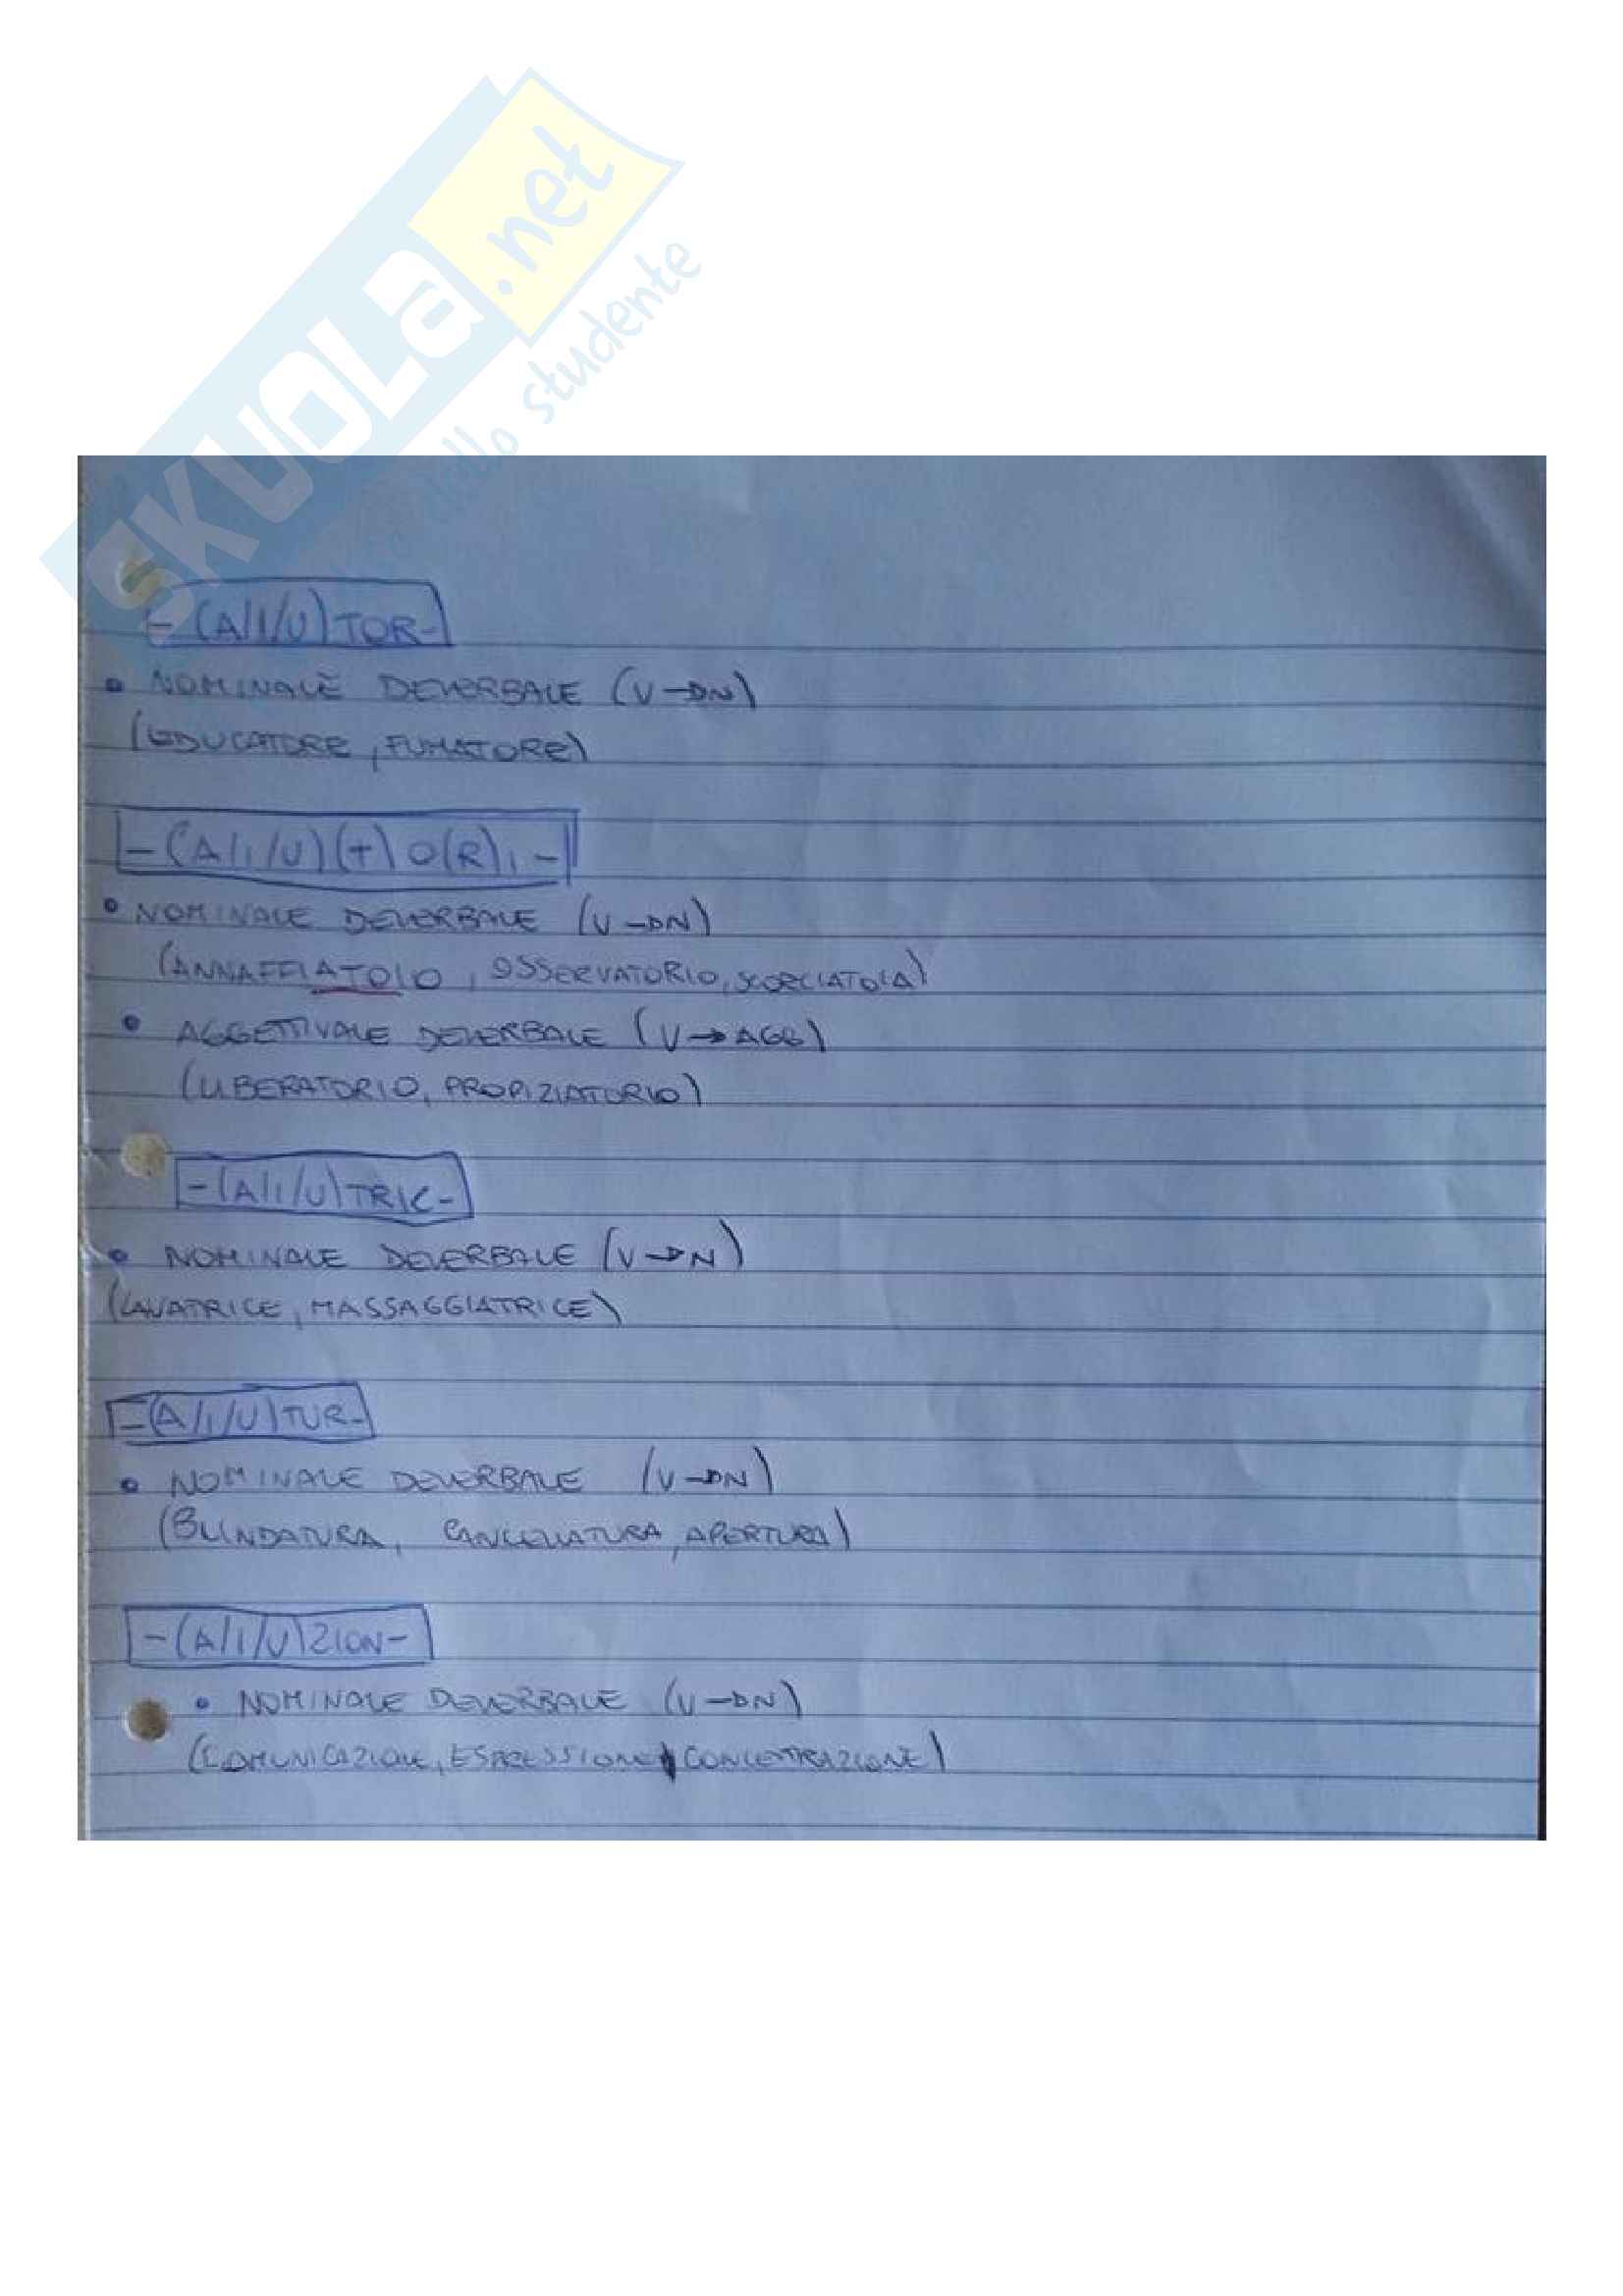 SKUOLA.net
dello studente
-(A/I/U)TOR-
• NOMINALE DEVERBALE (V→N)
(EDUCATORE, FUMATORE)
-(A/I/U)(T)O(R)I-
• NOMINALE DEVERBALE (V→N)
(ANNAFFIATOIO, OSSERVATORIO, SCORCIATOIA)
• AGGETTIVALE DEVERBALE (V→AGG)
(LIBERATORIO, PROPIZIATORIO)
-(A/I/U)TRIC-
• NOMINALE DEVERBALE (V→N)
(LAVATRICE, MASSAGGIATRICE)
-(A/I/U)TUR-
• NOMINALE DEVERBALE (V→N)
(BLINDATURA, CANCELLATURA, APERTURA)
-(A/I/U)ZION-
• NOMINALE DEVERBALE (V→N)
(COMUNICAZIONE, ESPRESSIONE, CONCENTRAZIONE)